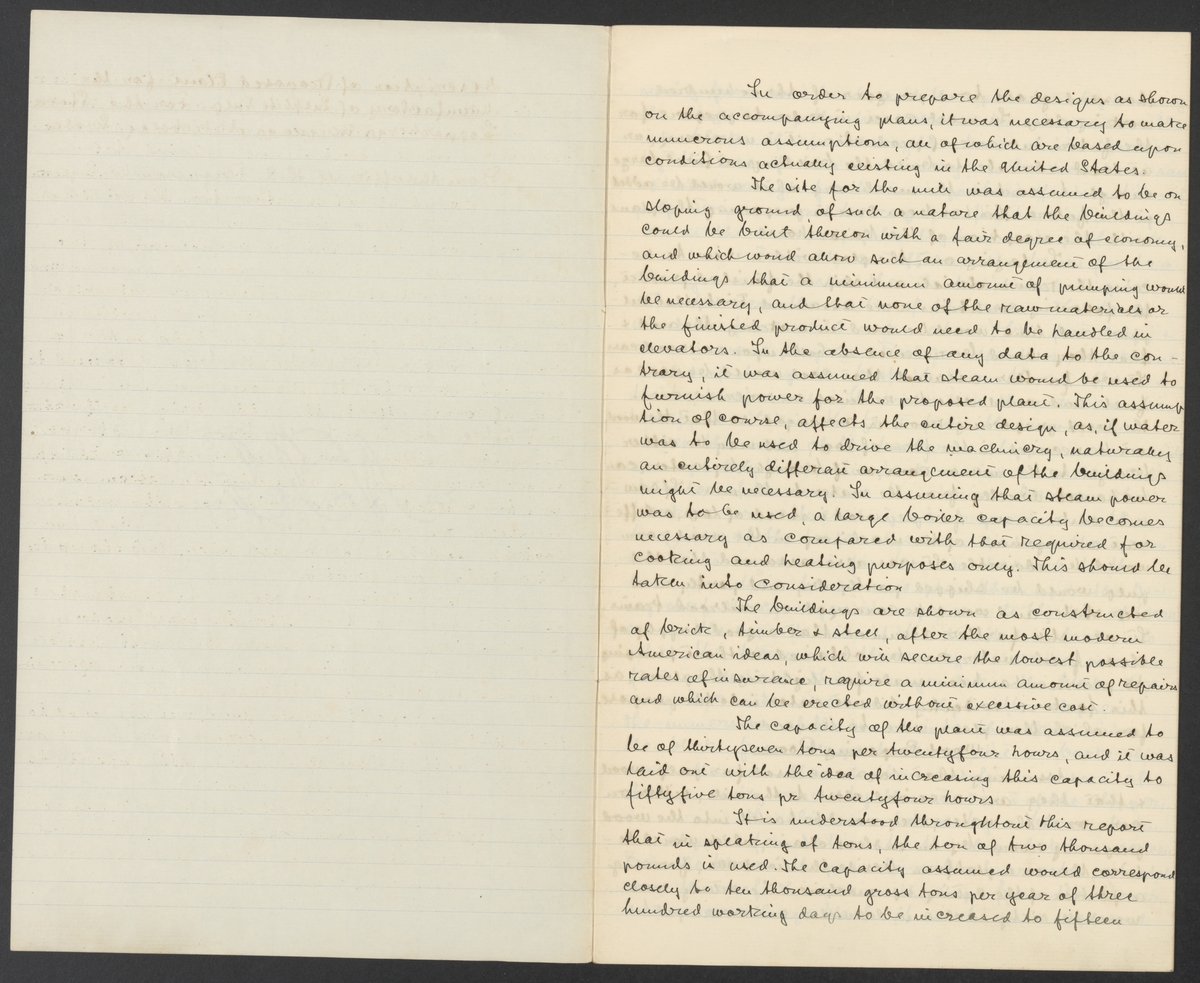 In order to prepare the designs as shown
on the accompanying plans, it was necessary to make
numerous assumptions, all of which are based upon
conditions actually existing in the United States.
The site for the mill was assumed to be on
sloping ground, of such a nature that the buildings
could be built thereon with a fair degree of economy,
and which woud allow such an arrangement of the
buildings that a minimum amount of pumping would
be necessary, and that none of the raw materials or
the finished product would need to be handled in
elevators. In the absence of any data, to the con-
trary, it was assumed that steam would be used to
furnish power for the proposed plant. This assump
tion of course, affects the entire design, as, if water
was to be used to drive the machinery, naturally
an entirely different arrangement of the buildings
might be necessary. In assuming that steam power
was to be used, a large boiler capacity becomes
necessary as compared with that required for
cooking and heating purposes only. This should be
taken into consideration
The buildings are shown as constructed
of brick, timber & steel, after the most modern
American ideas, which will secure the lowest possible
rates of insurance, require a minimum amount of repairs
and which can be erected without excessive cost.
The capacity of the plant was assumed to
be of thirtyseven tons per twentyfour hours, and it was
laid out with the idea of increasing this capacity to
fiftyfive tons pr twentyfour hours
It is understood throughtout this report
that in speaking of tons, the ton of two thousand
pounds is used. The capacity assumed would correspond
closely to ten thousand gross tons per year of three
hundred working days to be increased to fifteen